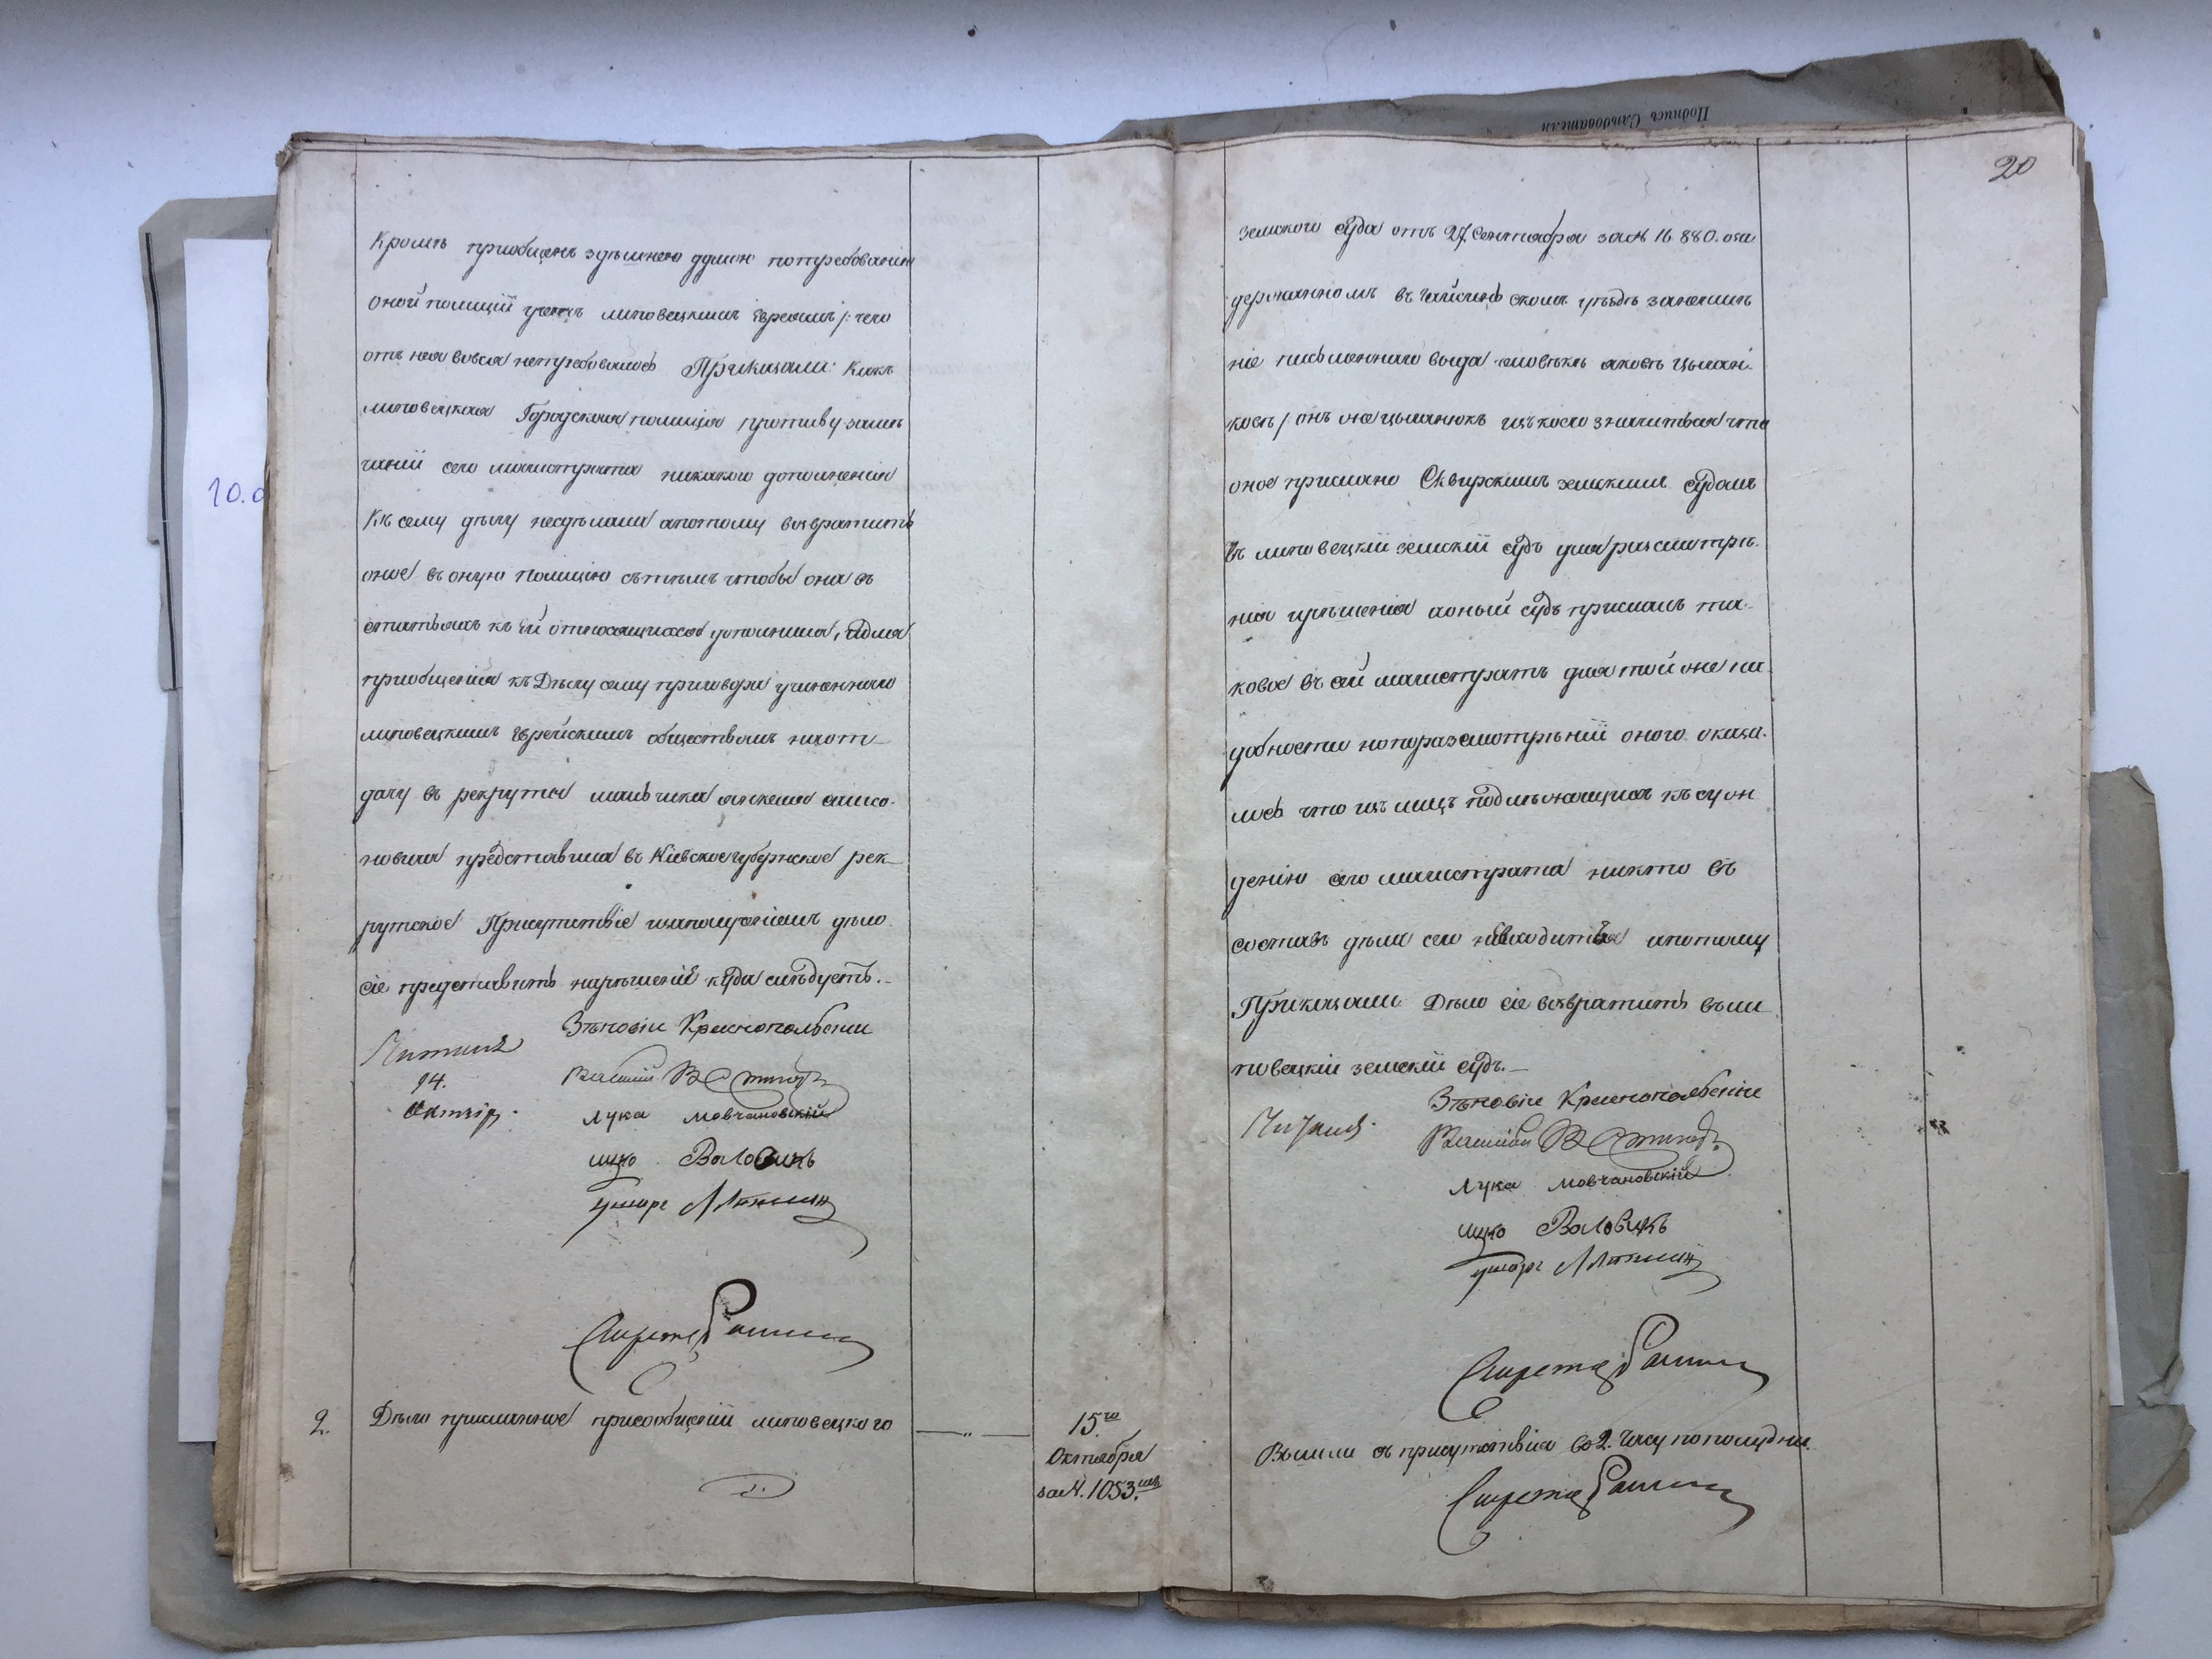 Подпись Слѣдователя
20
10.0
Кромѣ приобщенъ здѣшнею думою потребованію
оной полиціи учетъ липовецкимъ Евреямъ /: чего
отъ нея вовся нетребовалось Приказали: Какъ
липовецкая Городская полиція противу замѣ
чаній сего магистрата никакого дополненія
Къ сему дѣлу несдѣлала апотому возвратить
оное въ оную полицію сътѣмъ чтобы она въ
статьяхъ къ ей относящихся дополнила, адля
приобщенія къ Дѣлу сему приговора учиненнаго
липовецкимъ Еврейскимъ обществомъ наот-
дачу въ рекруты мальчика
новича представила въ Кіевское губернское рек-
рутское Присутствіе дѣло
сіе представить нарѣшеніе куда слѣдуетъ.-
Зѣновіи Краснопольскии
14.
Октяб.
Лука Мовчановскій
Ицко Воловикъ
Секретарь
2. Дѣло присланное присообщеніи липовецкого
— „ — 15го
Октября
за N. 1053.мъ
земского суда отъ 27. Сентября за N 16.880. оза
держанномъ въ Гайсинскомъ уѣздѣ занеимѣ
ніе письменнаго вида человѣкѣ яковѣ Цыган-
ковѣ / онъ же цыганюкъ изъ коего значитъся что
оное прислано Сквирскимъ земскимъ судомъ
въ липовецкій земскій судъ для разсмотрѣ-
нія ирѣшенія аоный судъ прислалъ та-
ковое въ сей магистратъ для той же на-
добности нопоразсмотрѣніи оного оказа-
лось что изъ лицъ подлѣжащихъ къ суж
денію сего магистрата никто въ
составъ дѣла сего невходитъ апотому
Приказали: Дѣло сіе возвратить въ ли
повецкій земскій судъ.-
Зѣновіи Краснопольскии
Читалъ.
Лука Мовчановскій
Ицко Воловикъ
Секретарь
Вышли съ присутствія во 2. часу пополудни.
Секретарь